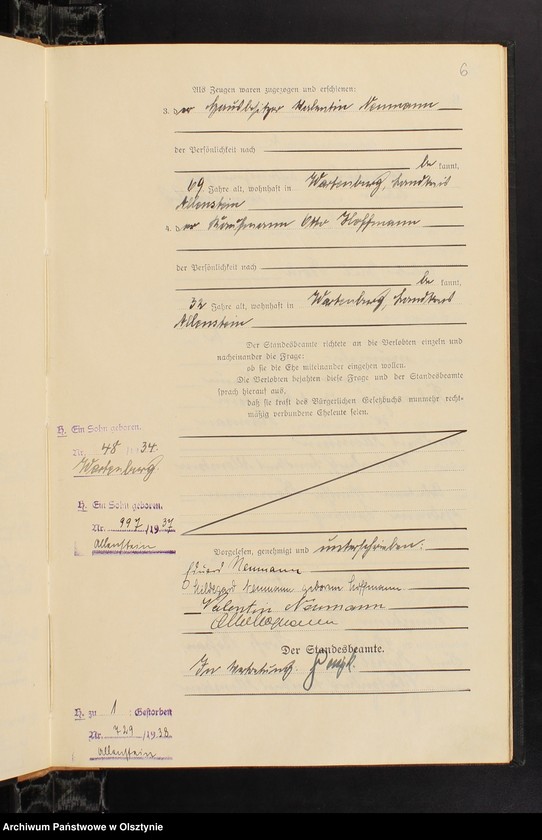 6
Als Zeugen waren zugezogen und erschienen:
3. der Hausbesitzer Valentin Neumann
der Persönlichkeit nach
bekannt,
69 Jahre alt, wohnhaft in Wartenburg, Landkreis
Allenstein
4. der Kaufmann Otto Hoffmann
der Persönlichkeit nach
bekannt,
32 Jahre alt, wohnhaft in Wartenburg, Landkreis
Allenstein
Der Standesbeamte richtete an die Verlobten einzeln und
nacheinander die Frage:
ob sie die Ehe miteinander eingehen wollen.
Die Verlobten bejahten diese Frage und der Standesbeamte
sprach hierauf aus,
daß sie kraft des Bürgerlichen Gesetzbuchs nunmehr recht-
mäßig verbundene Eheleute seien.
H. Ein Sohn geboren.
Nr. 48 1934.
Wartenburg
H. Ein Sohn geboren.
Nr. 997/1937
Allenstein
Vorgelesen, genehmigt und unterschrieben:
Eduard Neumann
Hildegard Neumann geborene Hoffmann
Valentin Neumann
Otto Hoffmann
Der Standesbeamte.
In Vertretung.
H. zu 1 : Gestorben
Nr. 729/1938
Allenstein
Archiwum Państwowe w Olsztynie